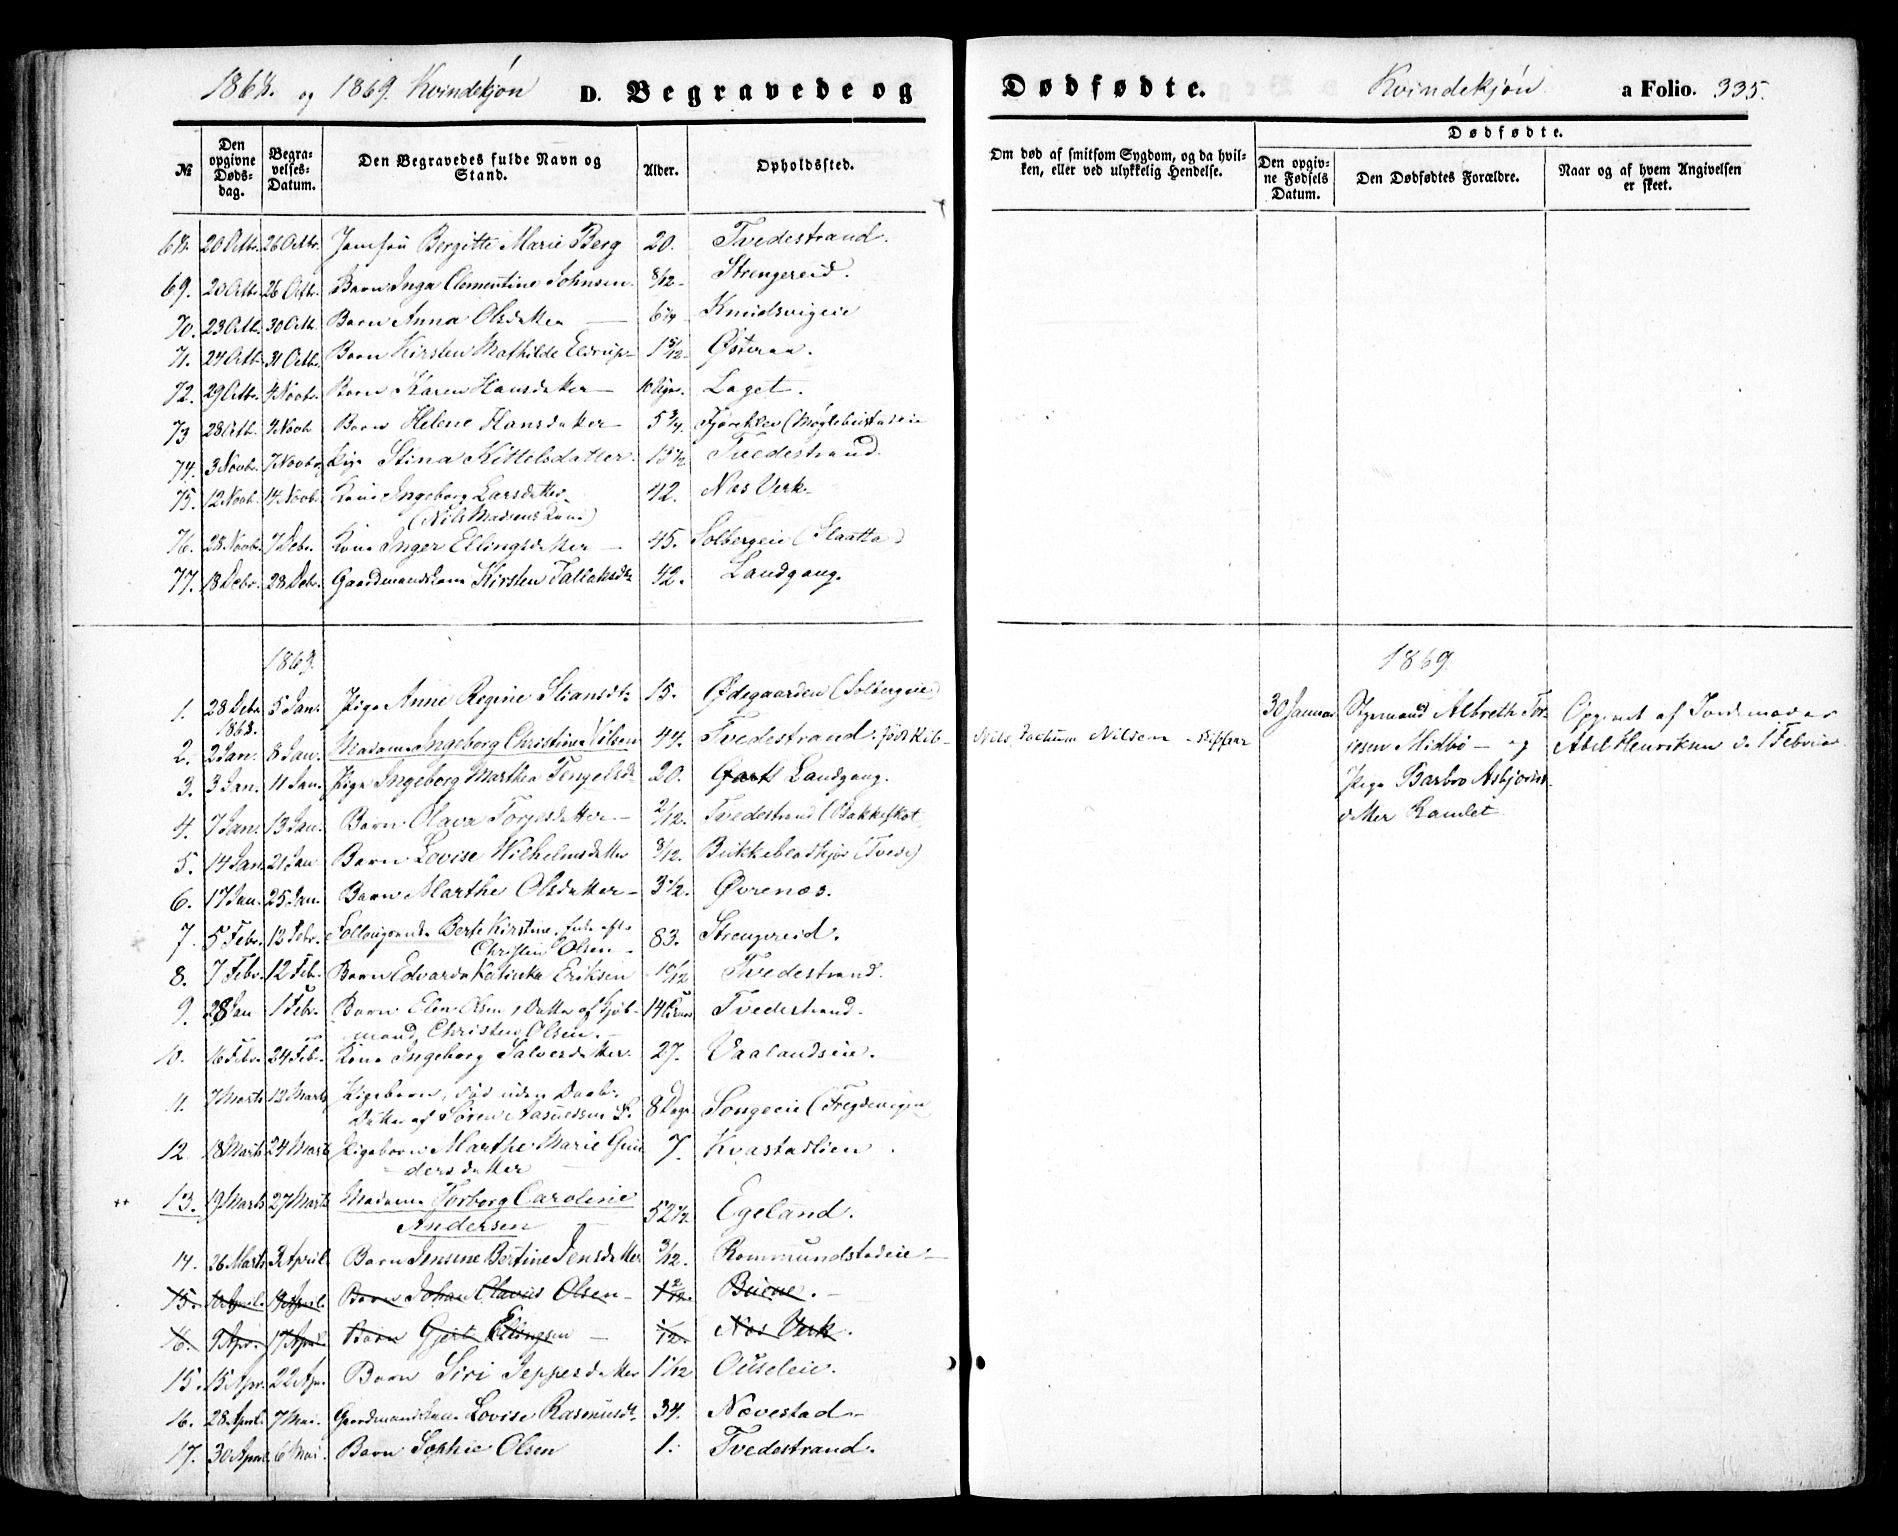 1868. og 1869. Kvindekjøn D. Begravede og
Dødfødte. Kvindekjøn. a Folio. 335.
№ Den opgivne Dødsdag. Begravelses-Datum. Den Begravedes fulde Navn og Stand. Alder. Opholdssted.
Om død af smitsom Sygdom, og da hvilken, eller ved ulykkelig Hendelse. Dødfødte. Den opgivne Fødsels Datum. Den Dødfødtes Forældre. Naar og af hvem Angivelsen er skeet.
68. 20 Octb. 26 Octbr. Jomfru Bergitte Marie Berg 20. Tvedestrand.
69. 20 Octb. 26 Octb. Barn Inga Clementine Johnsen 8/12 Strengereid.
70. 23 Octb. 30 Octb. Barn Anna Olsdatter Knudsvigeie
71. 24 Octb. 31 Octb. Barn Kirsten Mathilde Eldrup 1 5/12 Østeraa.
72. 29 Octbr. 4 Novbr. Barn Karen Hansdatter Laget.
73 28 Octb. 4 Novb Barn Helene Hansdatter 5 3/4
74. 3 Novbr. 7 Novbr. Pige Stina Kittelsdatter Tvedestrand.
75. 12 Novb. 14 Novb. Kone Ingeborg Larsdatter 42. Næs Verk
(Nils Madsens Kone)
76. 28 Novbr. 7 Debr. Kone Inger Ellingsdatter 45. Solbergeie (Slaatta)
77. 18 Debr. 28 Debr. Gaardmandskone Kirsten Tallaksdtr 42. Landgang.
1869. 1869
1. 28 Debr. 1868. 5 Jan. Pige Anne Regine Stiansdtr 15. Ødegaarden (Solbergeie)
2. 2 Jan. 8 Jan. Madame Ingeborg Christine Nilsen 44. Tvedestrand Nils Jochum Nilsen - Skipper
30 Januar Styrmand Albreth Torjesen Midbø - og Pige Barbro Asbjørnsdatter Ramlet
Opgivet af Jordemoder Abel Henriksen d. 1 Februar
3. 3 Jan. 11 Jan. Pige Ingeborg Marthea Tengelsdtr 20. Landgang.
4. 7 Jan. 13 Jan. Barn Olava Torjesdatter 2/12. Tvedestrand (Bakkeskot
5. 14 Jan. 21 Jan Barn Lovise Wilhelmsdatter 3/12. Bukkebladkjør (Tvede)
6. 17 Jan. 25 Jan. Barn Marthe Olsdatter 3 1/2. Øvrenæs.
7. 5 Febr. 13 Febr. Berte Kirstine, Enke efter Christen Olsen 83. Strengereid.
8. 7 Febr. 12 Feb. Barn Edvarda Katinka Eriksen 10/12 Tvedestrand.
9. 28 Jan 1 Febr. Barn Elen Olsen, Datter af Kjøbmand Christen Olsen. 14 Tvedestrand.
10. 16 Febr. 24 Feb. Kone Ingeborg Salvesdatter. 27. Vaalandseie.
11. 7 Marts 13 Marts Pigebarn, død uden Daab. Datter af Søren Aasuldsen 8 Dage Songeeie
12 18 Marts 24 Marts Pigebarn Marthe Marie Gundersdatter 7. Kvastadlien
13. 19 Marts 27 Marts Madame Torborg Caroline Andersen 52 1/2. Egeland.
14. 26 Marts 3 April Barn Jensine Bertine Jensdatter 3/12. Rommundstadeie
15. 10 April. 19 April. Barn Johan Olavus Olsen Buene.
16. 9 Apr. 17 April Barn Gjert Ellingsen Næs Verk.
15. 15 Apr. 22 Apr. Barn Siri Jeppesdatter 1 1/12 Ouseleie.
16. 28 April. 7 Mai. Gaardmandskone Lovise Rasmusdtr 34. Nævestad
17. 30 April 6 Mai. Barn Sophie Olsen 1. Tvedestrand.